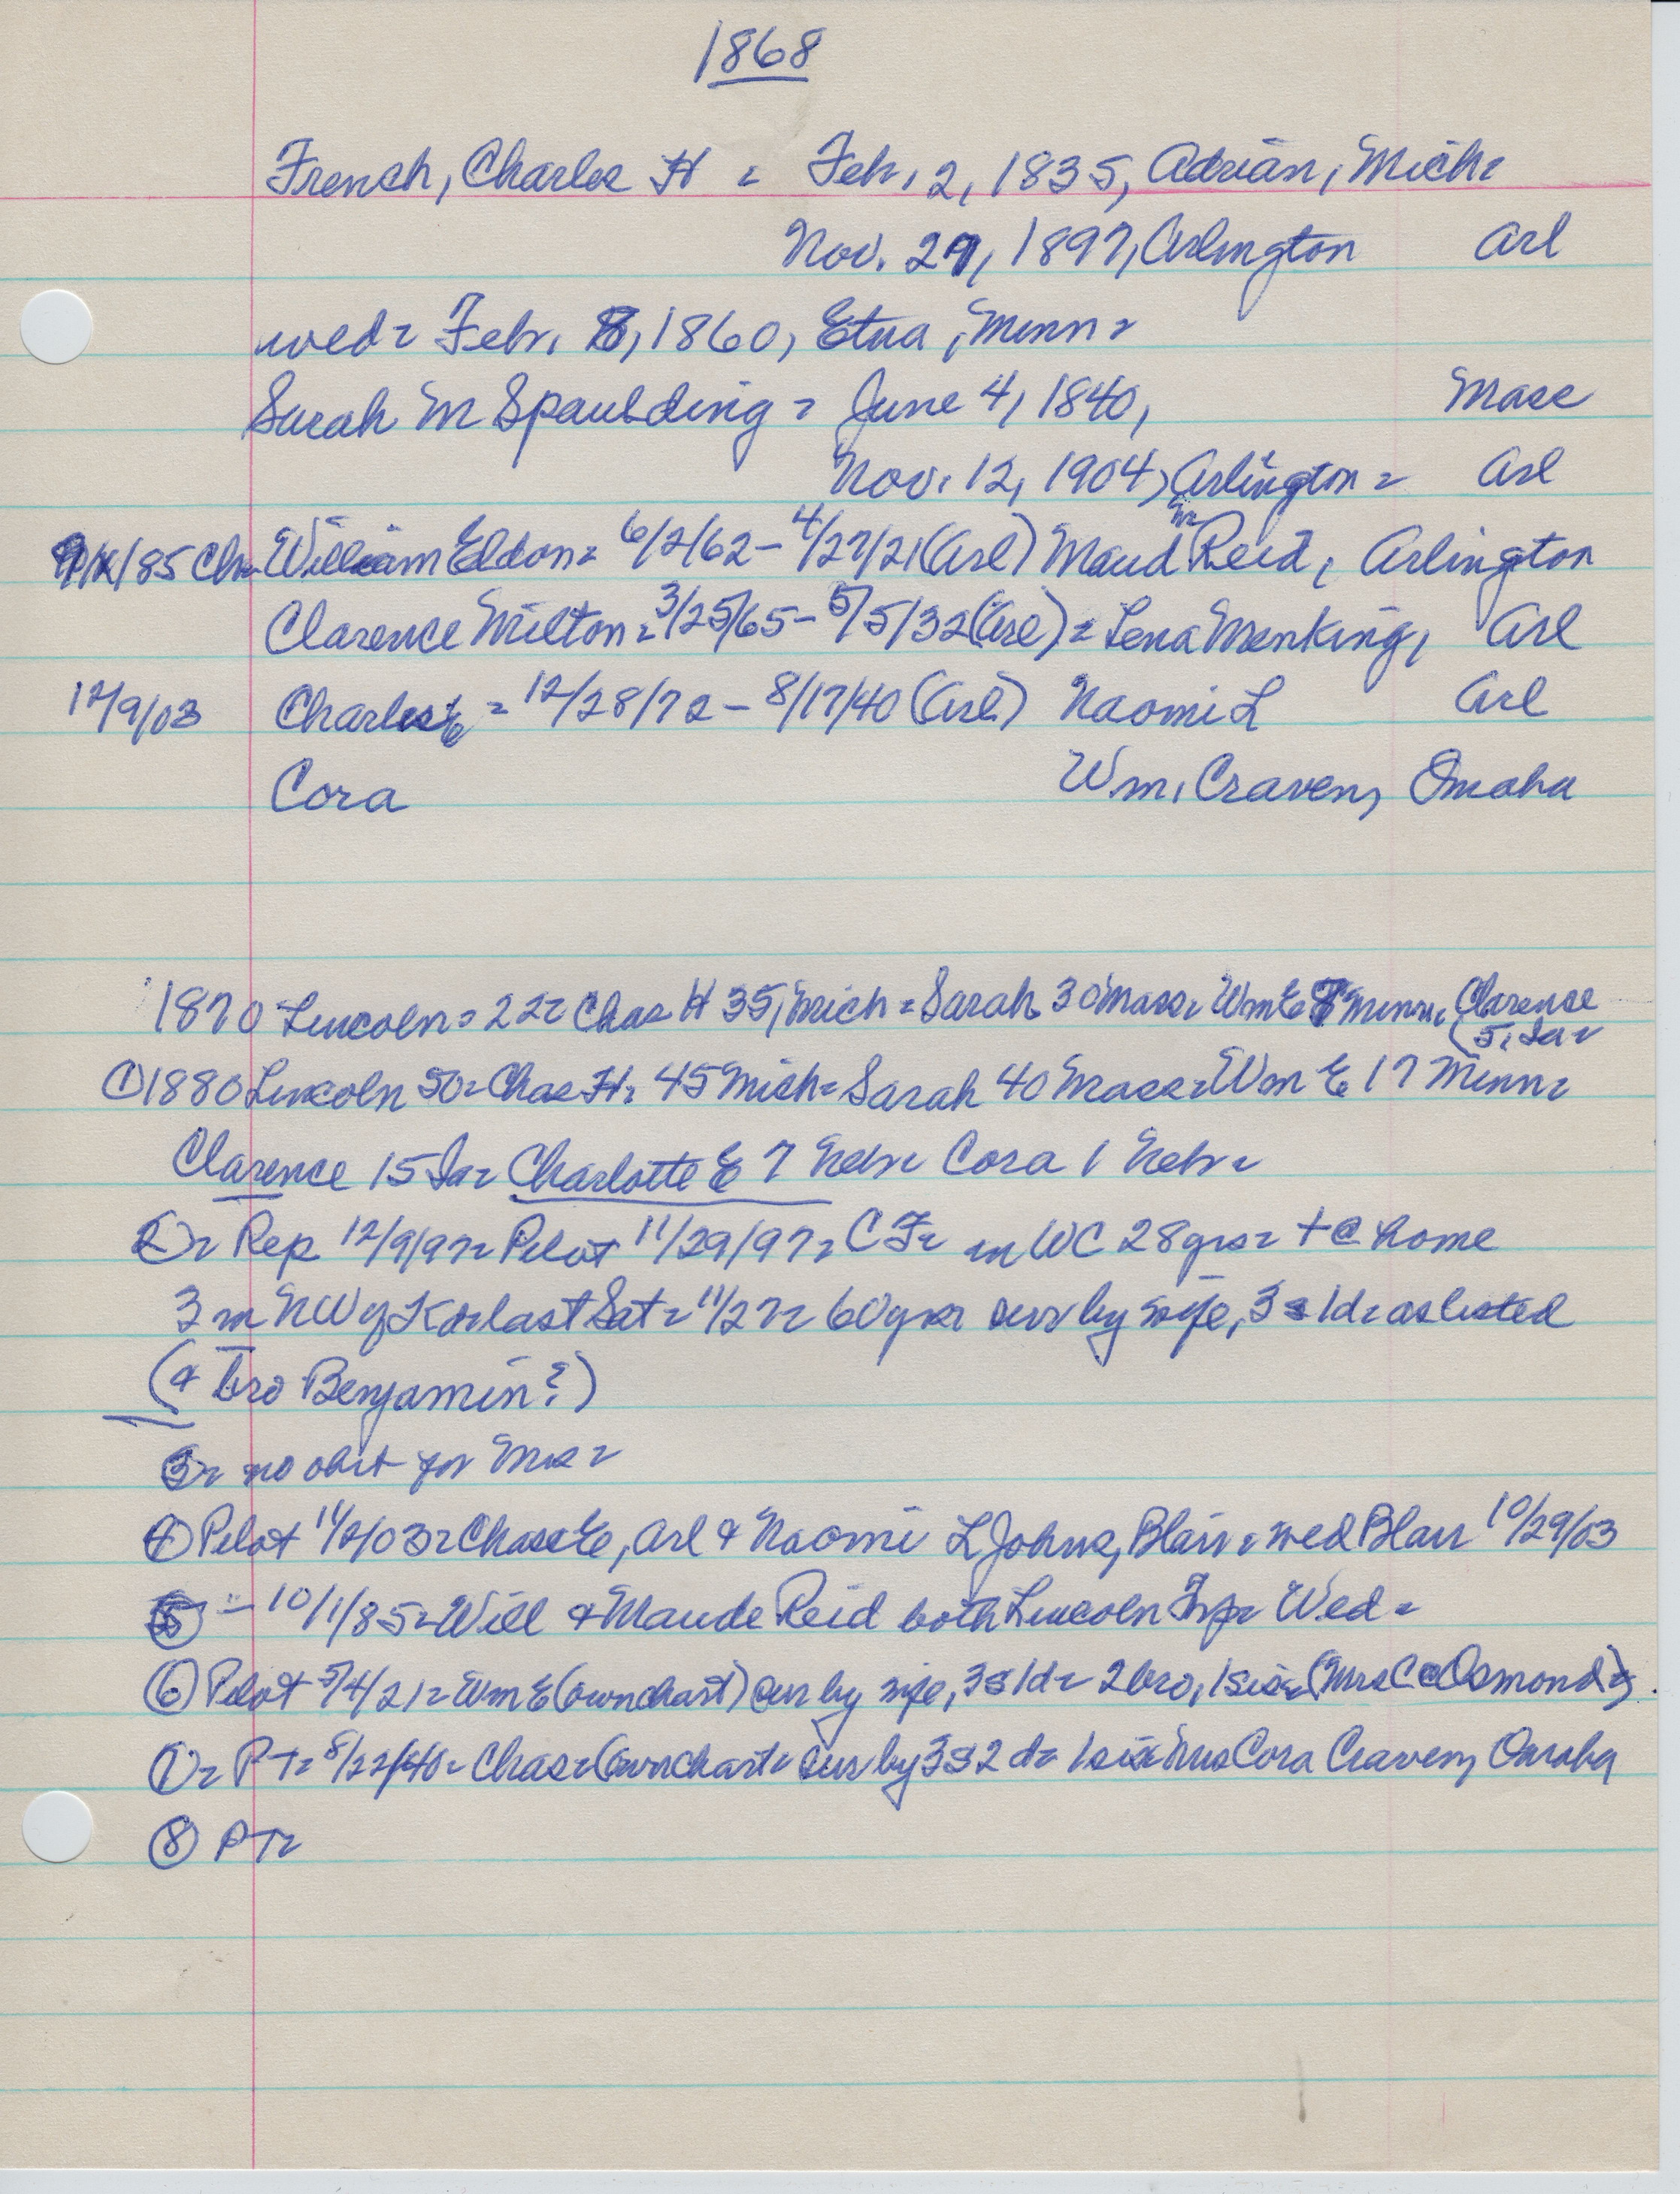 1868
French, Charles H = Feb. 2, 1835, Adrian, Mich=
Nov. 27, 1897, Arlington Arl
wed= Feb. 8, 1860, Etna, Minn=
Sarah M Spaulding = June 4, 1840, Mass
Nov. 12, 1904, Arlington = Arl
/85 Chr William Eldon= 6/2/62 - 4/27/21 (Arl) Maud M Reid, Arlington
Clarence Milton= 3/25/65 - 5/5/32 (Arl) = Lena Menking, Arl
12/9/03 Charles E = 12/28/72 - 8/17/40 (Arl) Naomi L Arl
Cora Wm. Craven, Omaha
1870 Lincoln= 22= Chas H 35, Mich = Sarah 30 Mass= Wm E 8 Minn= Clarence
(5, Ia=
① 1880 Lincoln 50= Chas H= 45 Mich= Sarah 40 Mass= Wm E 17 Minn=
Clarence 15 Ia= Charlotte E 7 Nebr= Cora 1 Nebr=
②= Rep 12/9/97= Pilot 11/29/97= CF= in WC 28 yrs= + @ home
3 m NW of K last Sat= 11/27= 60 yrs= sur by wife, 3 s 1 d= as listed
(& bro Benjamin?)
③= no obit for Mrs=
④ Pilot 11/2/03= Chas E, Arl & Naomi L Johns, Blair= wed Blair 10/29/03
⑤ - 10/1/85= Will & Maude Reid both Lincoln Twp= Wed=
⑥ Pilot 5/4/21= Wm E (own chart) sur by wife, 3s 1d= 2 bro, 1 sis= (Mrs C Osmond)
⑦= PT= 8/22/40= Chas= (own chart= sur by 3s 2 d= 1 sis= Mrs Cora Craven, Omaha
⑧ PT=